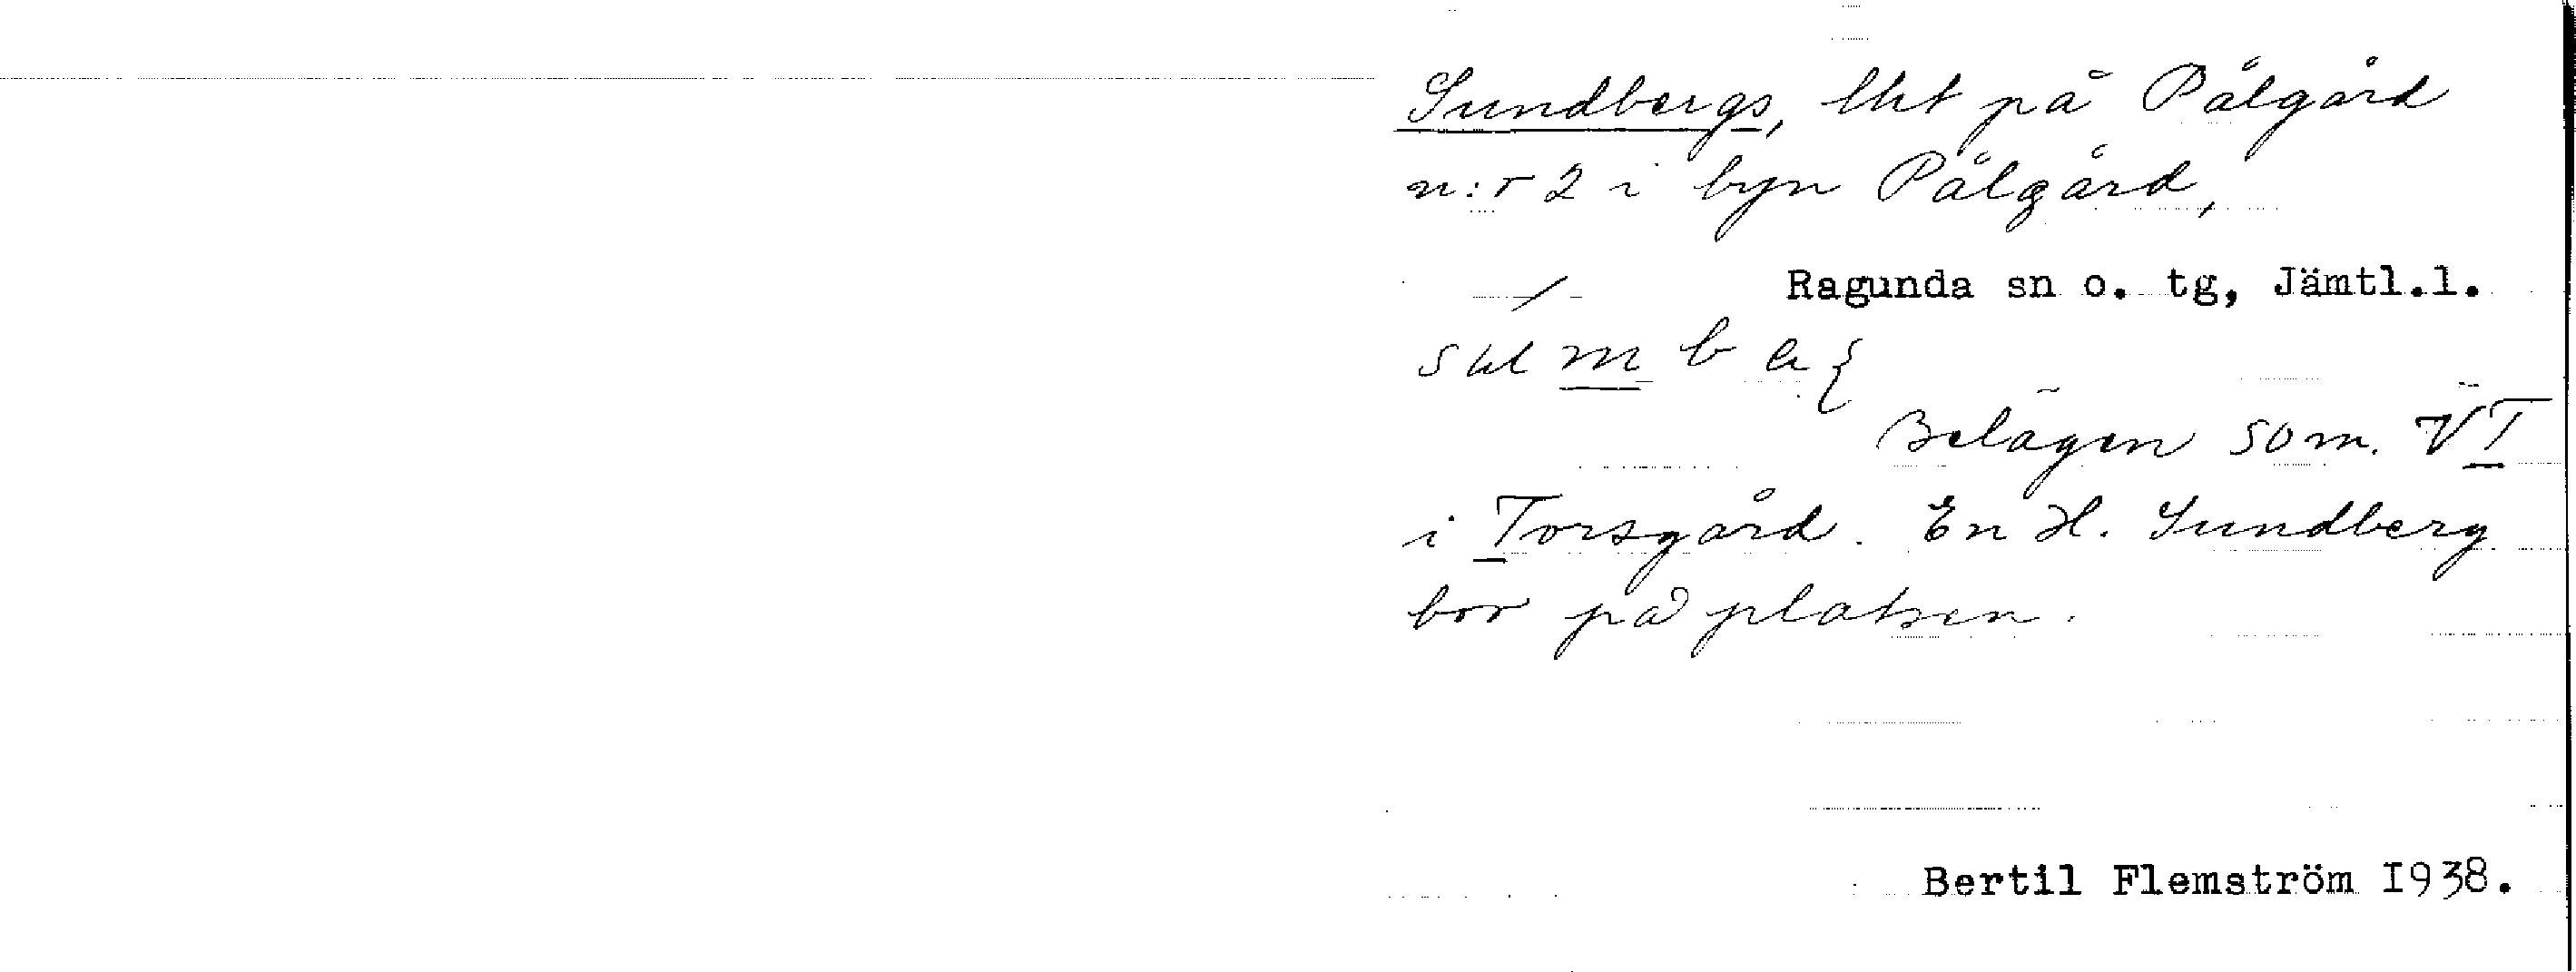 Sundbergs, lht på Pålgård
n:r 2 i byn Pålgård,
Ragunda sn o. tg, Jämtl.l.
Belägen som. VI
i Torsgård. En H. Sundberg
bor på platsen.
Bertil Flemström I938.